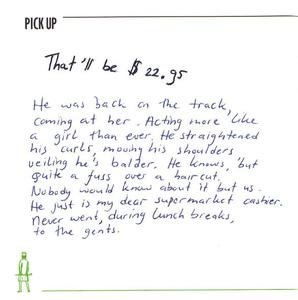 PICK UP
That'll be $ 22.95
He was back on the track,
coming at her. Acting more like
a girl than ever. He straightened
his curls, moving his shoulders
veiling he's balder. He knows, 'but
quite a fuss over a haircut.
Nobody would know about it but us.
He just is my dear supermarket cashier.
Never went, during lunch breaks,
to the gents.